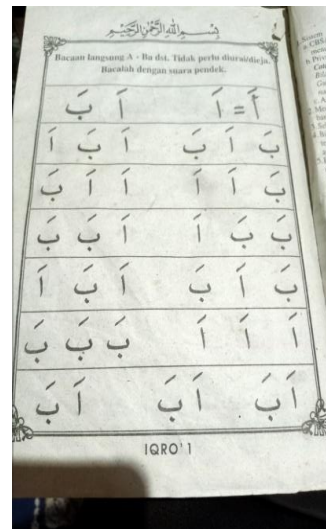 بِسْمِ اللهِ الرَّحْمٰنِ الرَّحِيْمِ
Bacaan langsung A - Ba dst. Tidak perlu diurai/dieja.
Bacalah dengan suara pendek.
أَ = اَ اَ بَ
بَ اَ بَ اَ بَ اَ
بَ اَ اَ اَ اَ بَ
بَ بَ اَ اَ بَ بَ
بَ اَ بَ اَ بَ اَ
اَ اَ اَ بَ بَ بَ
اَ بَ اَ بَ اَ بَ
IQRO' 1